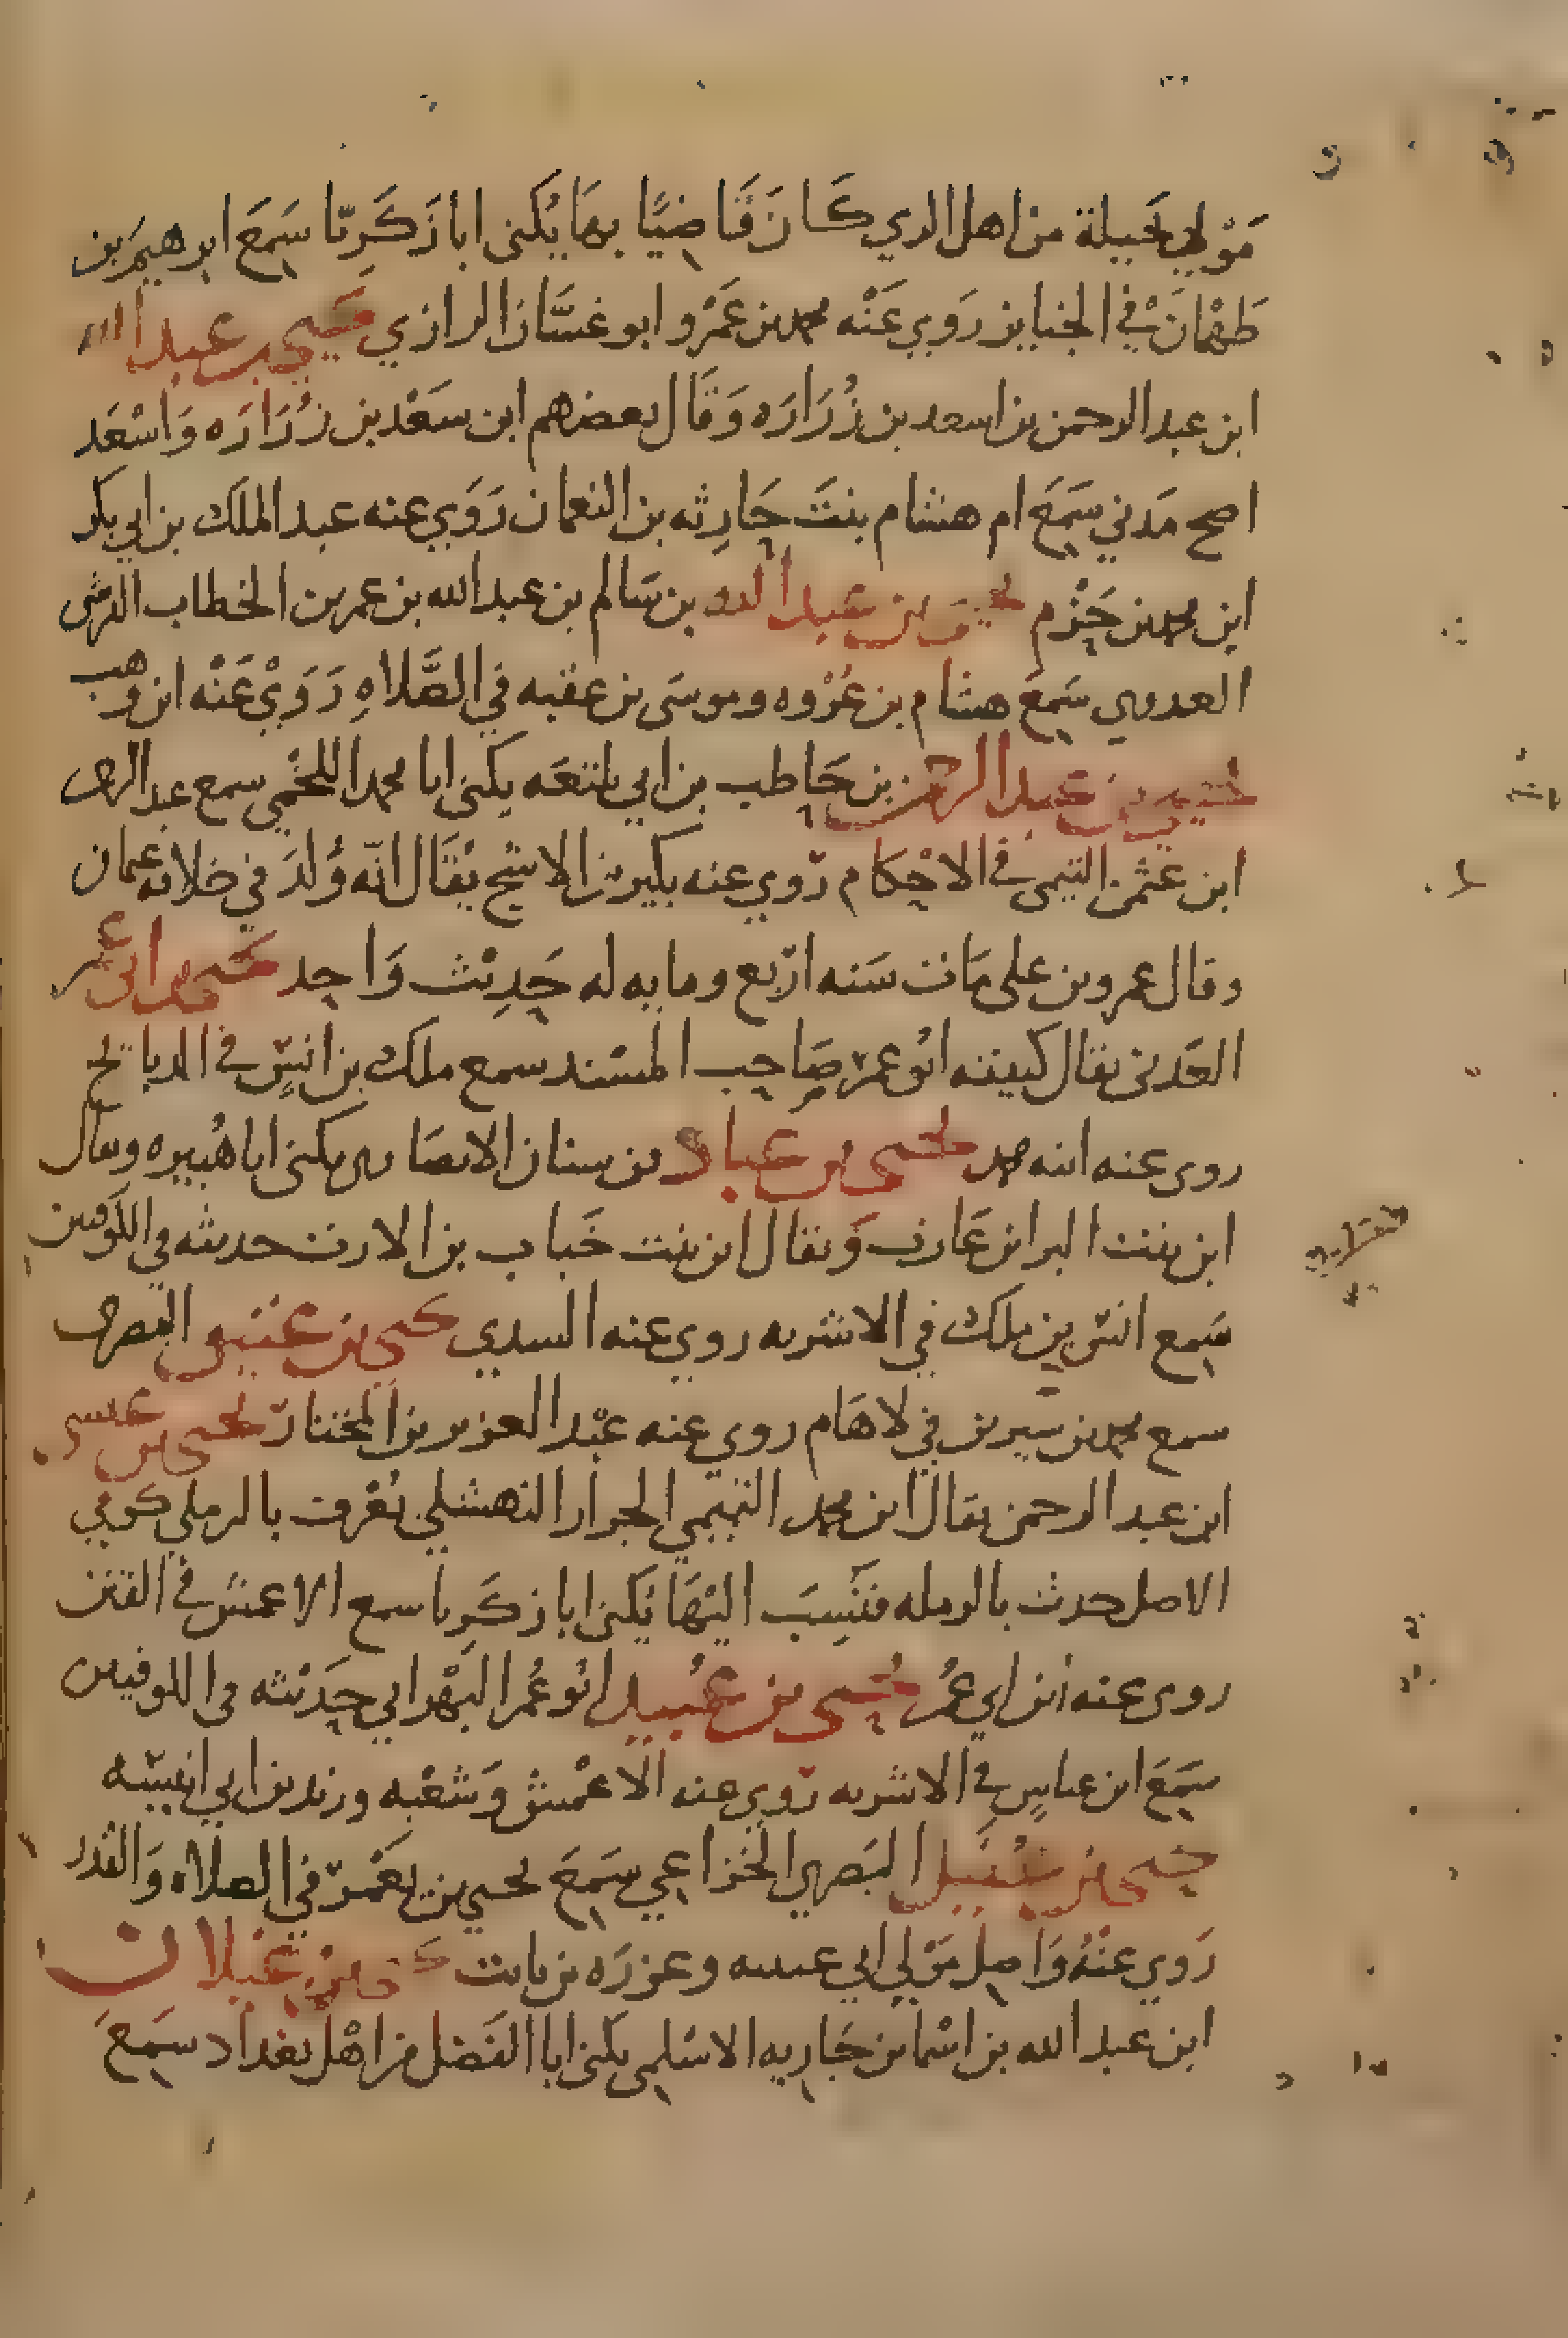 مَوْلي بَجيلة من اهل الري كَانَ قَاضِيًا بهَا يُكنى ابا زَكَرِيّا سَمِعَ ابرهيمَ بن
طَهْمَانَ في الجنايز رَوَي عَنْه محمد بن عَمْرو ابو غسَّان الرازي يحيى بن عبد الله
ابن عبد الرحمن بن اسعد بن زُرَارَه وَقَال بعضهم ابن سَعْد بن زُرَارَه وَاسْعَد
اصح مَدني سَمِعَ ام هشام بنتَ حَارِثه بن النعمان رَوَي عنه عبد الملك بن ابي بكر
ابن محمد بن حَزْم يحيى بن عبد الله بن سَالم بن عبد الله بن عمر بن الخطاب القرشي
العدوي سَمعَ هشام بن عُرْوه وموسَى بن عقبه في الصَّلاهِ رَوَيْ عَنْه ابن وهب
يحيى بن عبد الرحمن بن حَاطب بن ابي بلتعَه يكنى ابا محمد اللخْمي سمع عبد الرحمن
ابن عثمن التيمي في الاحْكام رَوي عنه بكير بن الاشج يقَال انّه وُلدَ في خلافه عثمان
وقال عمرو بن علي مَات سَنه ارْبع ومايه له حَدِيْث وَاحِد يحيى بن ابي عمر
العَدني يقال كنيته ابُو عمر صَاحِب المسْند سمع ملك بن انسٍ في الذبايح
روى عنه ابنه محمد يحيى بن عباد بن سنان الانصَاري يكنى ابا هُبيره ويقال
ابن بنت البرا بن عَازب وَيقال ابن بنت خَباب بن الارت حديثه في الكوفيين
سَمِع انسَ بن ملك في الاشربه روي عنه السدي يحيى بن عتيق البصري
سمع محمد بن سيرين في لاهَام روي عنه عبْد العزيز بن المختار يحيى بن عيسى
ابن عبد الرحمن يقال ابن محمد التميمي الجرار النهشلي يُعْرف بالرملي كوفي
الاصل حدث بالرمله فنُسِبَ اليْهَا يُكنى ابا زكَرِيا سمع الاعمش في الفتن
روى عنه ابن ابي عُمر يُحيى بن عُبيد ابُو عُمر البَهْراني حِدَيْثه في الكوفيين
سَمِعَ ابن عباسٍ في الاشربه رَوي عنه الاعْمش وَشعْبه وزيد بن ابي انيسَه
يحيى بن عُقَيل البَصري الخزاعي سَمِعَ يحيى بن يَعْمَر في الصلاه وَالقدر
رَوي عنْهُ وَاصِل مَوْلي ابي عيينه وعزرَه بن ثابت يحيى بن غيلان
ابن عبد الله بن اسْما بن حَارِثه الاسْلمي يكنى ابا الفَضل من اهْل بغداد سَمِعَ